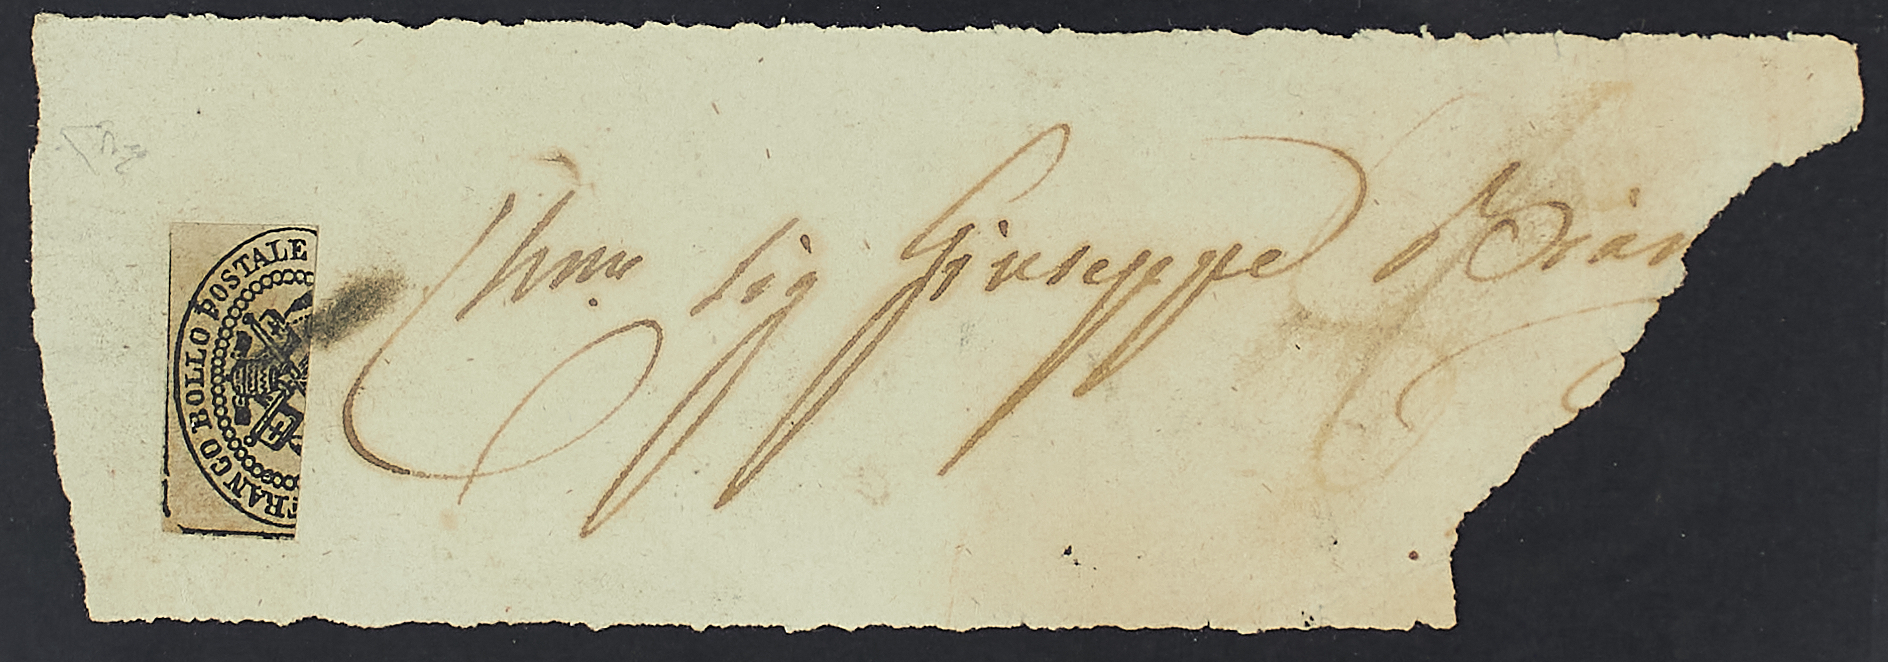 FRANCO BOLLO POSTALE
Illmo Sig Giuseppe Bian